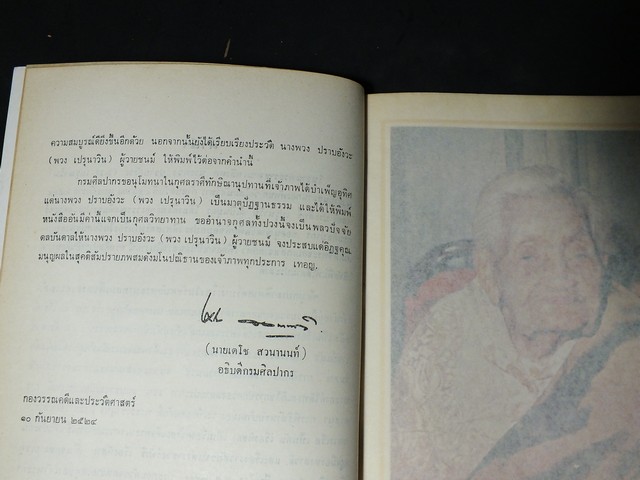 ความสมบูรณ์ดียิ่งขึ้นอีกด้วย นอกจากนั้นยังได้เรียบเรียงประวัติ นางพวง ปราบอังวะ
(พวง เปรุนาวิน) ผู้วายชนม์ ให้พิมพ์ไว้ต่อจากคำนำนี้
กรมศิลปากรขออนุโมทนาในกุศลราศีทักษิณานุปทานที่เจ้าภาพได้บำเพ็ญอุทิศ
แด่นางพวง ปราบอังวะ (พวง เปรุนาวิน) เป็นมาตุปัฏฐานธรรม และได้ให้พิมพ์
หนังสืออันมีค่านี้แจกเป็นกุศลวิทยาทาน ขออำนาจกุศลทั้งปวงนี้จงเป็นพลวปัจจัย
ดลบันดาลให้นางพวง ปราบอังวะ (พวง เปรุนาวิน) ผู้วายชนม์ จงประสบแต่อิฏฐคุณ
มนุญผลในสุคติสัมปรายภพสมดังมโนปณิธานของเจ้าภาพทุกประการ เทอญ.
(นายเดโช สวนานนท์)
อธิบดีกรมศิลปากร
กองวรรณคดีและประวัติศาสตร์
๑๐ กันยายน ๒๕๒๔